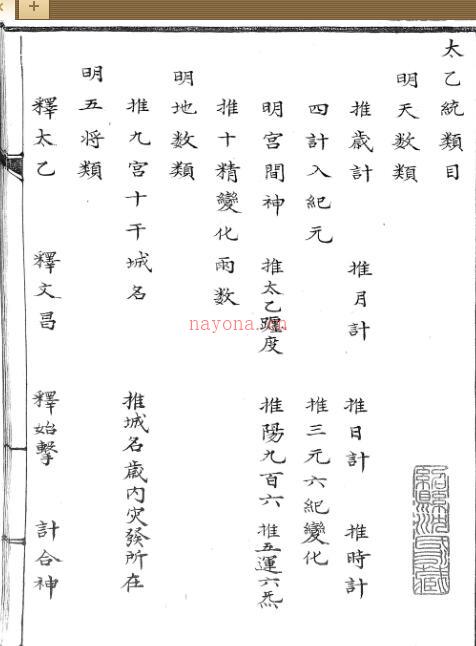 太乙統類目
明天數類
推歲計 推月計 推日計 推時計
四計入紀元 推三元六紀變化
明宮間神 推太乙躔度 推陽九百六 推五運六炁
推十精變化雨数
明地数類
推九宮十干城名 推城名歲内灾發所在
明五将類
釋太乙 釋文昌 釋始擊 計合神
nayona.cn